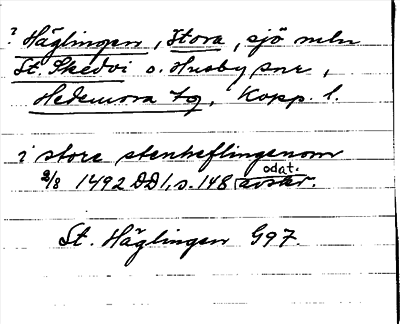 ? Häglingen, Stora, sjö mln
St. Skedvi o. Husby snr,
Hedemora tg, Kopp. l.
i store stenheflingenom
2/8 1492 DD 1, s. 148 odat.
St. Häglingen G97.